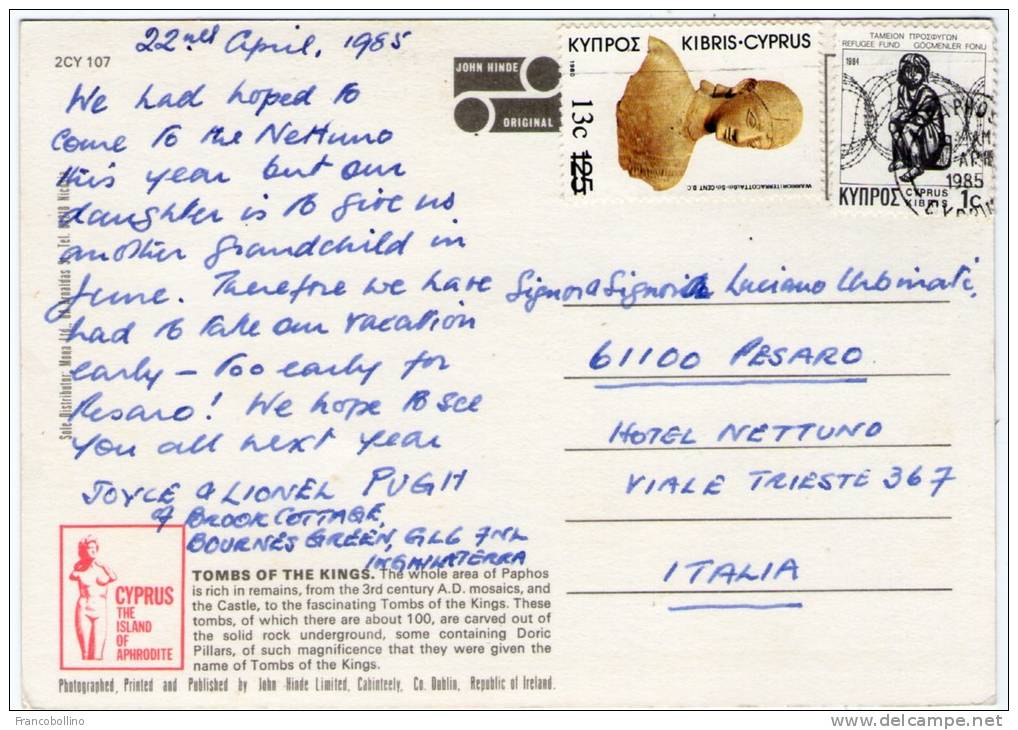 22nd April, 1985
2CY 107
We had hoped to
come to the Nettuno
this year but our
daughter is to give us
another grandchild in
June. Therefore we have
had to take our vacation
early – Too early for
Pesaro! We hope to see
you all next year
JOYCE & LIONEL PUGH
of BROOK COTTAGE,
BOURNES GREEN, GL6 7NL
INGHILATERRA
JOHN HINDE
ORIGINAL
ΚΥΠΡΟΣ KIBRIS·CYPRUS
1980
13c
125
WARRIOR (TERRACOTTA) 6th-5th CENT. B.C.
ΤΑΜΕΙΟΝ ΠΡΟΣΦΥΓΩΝ
REFUGEE FUND GÖÇMENLER FONU
1984
ΚΥΠΡΟΣ CYPRUS
KIBRIS 1c
PHOS
AM
1985
Signora Signor Luciano Urbinati,
61100 PESARO
HOTEL NETTUNO
VIALE TRIESTE 367
ITALIA
Sole Distributor: Mona Ltd.
CYPRUS
THE
ISLAND
OF
APHRODITE
TOMBS OF THE KINGS. The whole area of Paphos
is rich in remains, from the 3rd century A.D. mosaics, and
the Castle, to the fascinating Tombs of the Kings. These
tombs, of which there are about 100, are carved out of
the solid rock underground, some containing Doric
Pillars, of such magnificence that they were given the
name of Tombs of the Kings.
Photographed, Printed and Published by John Hinde Limited, Cabinteely, Co. Dublin, Republic of Ireland.
Francobollino
delcampe.net